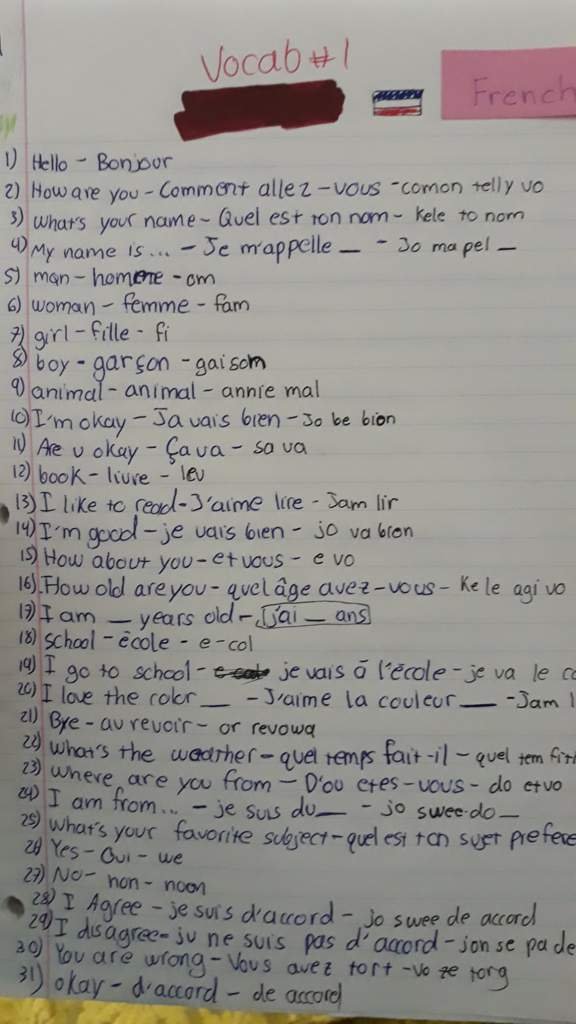 Vocab #1
French
1) Hello - Bonjour
2) How are you - Comment allez-vous - comon telly vo
3) What's your name - Quel est ton nom - Kele to nom
4) My name is... - Je m'appelle _ - Jo ma pel _
5) man - homme - om
6) woman - femme - fam
7) girl - fille - fi
8) boy - garçon - gaisom
9) animal - animal - annie mal
10) I'm okay - Ja vais bien - Jo be bion
11) Are u okay - Ça va - sa va
12) book - livre - lev
13) I like to read - J'aime lire - Jam lir
14) I'm good - je vais bien - jo va bion
15) How about you - et vous - e vo
16) How old are you - quel âge avez-vous - Ke le agi vo
17) I am _ years old - j'ai _ ans
18) school - école - e-col
19) I go to school - je vais à l'école - je va le
20) I love the color _ - J'aime la couleur _ - Jam
21) Bye - au revoir - or revowa
22) What's the weather - quel temps fait-il - quel tem
23) Where are you from - D'ou etes-vous - do etvo
24) I am from... - je suis du _ - jo swee-do _
25) What's your favorite subject - quel est ton sujet prefere
26) Yes - Oui - we
27) No - non - noon
28) I Agree - je suis d'accord - jo swee de accord
29) I disagree - ju ne suis pas d'accord - jon se pa de
30) You are wrong - Vous avez tort - vo ze torg
31) okay - d'accord - de accord